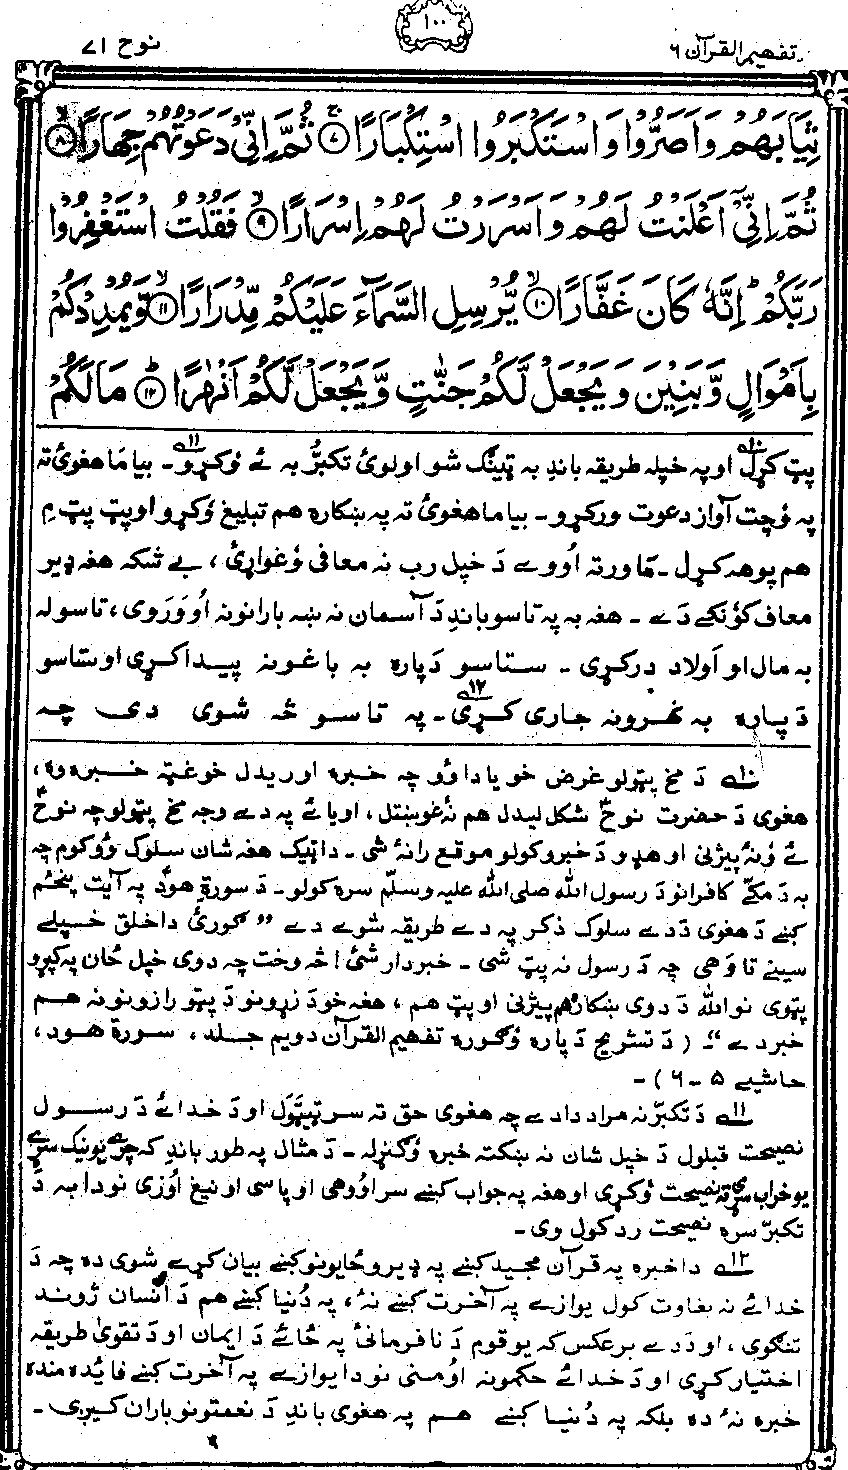 تفهیم القرآن ۶
۱۰۰
نوح ۷۱
ثِيَابَهُمْ وَاَصَرُّوْا وَاسْتَكْبَرُوا اسْتِكْبَارًا ۷ ثُمَّ اِنِّيْ دَعَوْتُهُمْ جِهَارًا ۸
ثُمَّ اِنِّيْٓ اَعْلَنْتُ لَهُمْ وَاَسْرَرْتُ لَهُمْ اِسْرَارًا ۹ فَقُلْتُ اسْتَغْفِرُوْا
رَبَّكُمْ اِنَّهٗ كَانَ غَفَّارًا ۱۰ يُّرْسِلِ السَّمَآءَ عَلَيْكُمْ مِّدْرَارًا ۱۱ وَّيُمْدِدْكُمْ
بِاَمْوَالٍ وَّبَنِيْنَ وَيَجْعَلْ لَّكُمْ جَنّٰتٍ وَّيَجْعَلْ لَّكُمْ اَنْهٰرًا ۱۲ مَا لَكُمْ
پټ کړل ۱۰ او په خپله طریقه باندِ به ټینګ شو او لوئ تکبرُّ به ئے وُکړو ۱۱ـ بیا مَا هغوئ ته
په وُچت آواز دعوت ورکړو ـ بیا ما هغوئ ته په ښکاره هم تبلیغ وُکړو او پټ پټ مِ
هم پوهه کړل ـ مَا ورته اُووے دَ خپل رب نه معافی وُغواړئ، بے شکه هغه ډیر
معاف کوُنکے دَے ـ هغه به په تاسو باندِ دَ آسمان نه ښه بارانونه اُووَرَوی، تاسو له
به مال او اَولاد درکړی ـ ستاسو دَپاره به باغونه پیدا کړی او ستاسو
دَ پاره به نهرونه جاری کړی ۱۲ـ په تاسو څه شوی دی چه
۱۰ دَ مخ پټولو غرض خو یا دا وُو چه خبره اوریدل خو غټه خبره وه،
هغوی دَ حضرت نوحؑ شکل لیدل هم نهٔ غوښتل، او یا ئے په دے وجه مخ پټولو چه نوحؑ
ئے وُنهٔ پیژنی او هډو دَ خبرو کولو موقع رانهٔ شی ـ دا ټیک هغه شان سلوک وُو کوم چه
به دَ مکّے کافرانو دَ رسول الله صلی الله علیه وسلّم سره کولو ـ دَ سورةِ هودؑ په آیت پنځم
کښے دَ هغوی دَ دے سلوک ذکر په دے طریقه شوے دے ”ګورئ دا خلق خپلے
سینے تاوَهی چه دَ رسول نه پټ شی ـ خبردار شئ! څه وخت چه دوی خپل ځان په کپړو
پټوی نو الله دَ دوی ښکاره هم پیژنی او پټ هم، هغه خو دَ زړونو دَ پټو رازونو نه هم
خبر دے“ـ (دَ تشریح دَ پاره وُګوره تفهیم القرآن دویم جلد، سورة هود،
حاشیے ۵ ـ ۶) ـ
۱۱ دَ تکبرّ نه مراد دادے چه هغوی حق ته سر ټیټول او دَ خدائے دَ رسول
نصیحت قبلول دَ خپل شان نه ښکته خبره وُګنړله ـ دَ مثال په طور باندِ که چرے یو نیک سړے
یو خراب سړی ته نصیحت وُکړی او هغه په جواب کښے سر اُووهی او پاسی او نیغ اوُزی نو دا به دَ
تکبرّ سره نصیحت رد کول وی ـ
۱۲ دا خبره په قرآن مجید کښے په ډیرو ځایونو کښے بیان کړے شوی ده چه دَ
خدائے نه بغاوت کول یوازے په آخرت کښے نهٔ، په دُنیا کښے هم دَ اَنسان ژوند
تنګوی، او دَ دے برعکس که یو قوم دَ نافرمانیٔ په ځائے دَ ایمان او دَ تقویٰ طریقه
اختیار کړی او دَ خدائے حکمونه اوُمنی نو دا یوازے په آخرت کښے فائده منده
خبره نهٔ ده بلکه په دُنیا کښے هم په هغوی باندِ دَ نعمتونو باران کیږی ـ